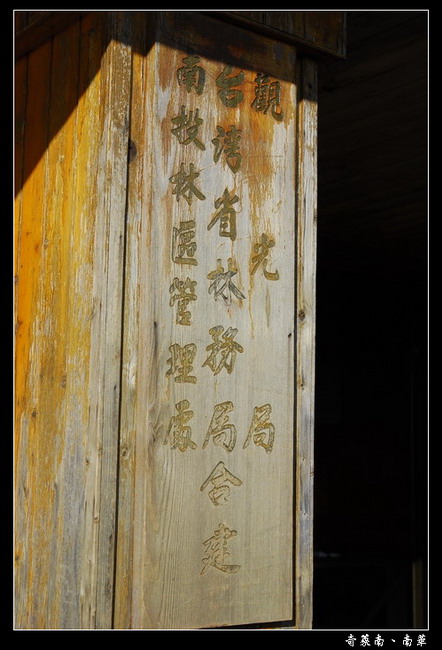 觀光局
台灣省林務局合建
南投林區管理處
奇萊南、南華